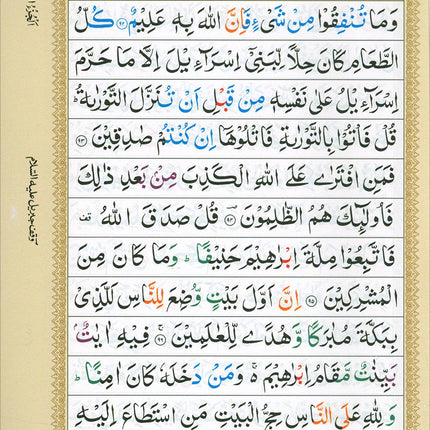 وَمَا تُنْفِقُوْا مِنْ شَیْءٍ فَاِنَّ اللّٰهَ بِهٖ عَلِیْمٌ ﴿۹۲﴾ كُلُّ
الطَّعَامِ كَانَ حِلًّا لِّبَنِیْۤ اِسْرَآءِیْلَ اِلَّا مَا حَرَّمَ
اِسْرَآءِیْلُ عَلٰی نَفْسِهٖ مِنْ قَبْلِ اَنْ تُنَزَّلَ التَّوْرٰىةُ ؕ
قُلْ فَاْتُوْا بِالتَّوْرٰىةِ فَاتْلُوْهَاۤ اِنْ كُنْتُمْ صٰدِقِیْنَ ﴿۹۳﴾
فَمَنِ افْتَرٰی عَلَی اللّٰهِ الْكَذِبَ مِنْۢ بَعْدِ ذٰلِكَ
فَاُولٰٓىِٕكَ هُمُ الظّٰلِمُوْنَ ﴿۹۴﴾ قُلْ صَدَقَ اللّٰهُ ۫
فَاتَّبِعُوْا مِلَّةَ اِبْرٰهِیْمَ حَنِیْفًا ؕ وَمَا كَانَ مِنَ
الْمُشْرِكِیْنَ ﴿۹۵﴾ اِنَّ اَوَّلَ بَیْتٍ وُّضِعَ لِلنَّاسِ لَلَّذِیْ
بِبَكَّةَ مُبٰرَكًا وَّهُدًی لِّلْعٰلَمِیْنَ ﴿۹۶﴾ فِیْهِ اٰیٰتٌۢ
بَیِّنٰتٌ مَّقَامُ اِبْرٰهِیْمَ ۚ۬ وَمَنْ دَخَلَهٗ كَانَ اٰمِنًا ؕ
وَلِلّٰهِ عَلَی النَّاسِ حِجُّ الْبَیْتِ مَنِ اسْتَطَاعَ اِلَیْهِ
وقف جبریل علیه السلام